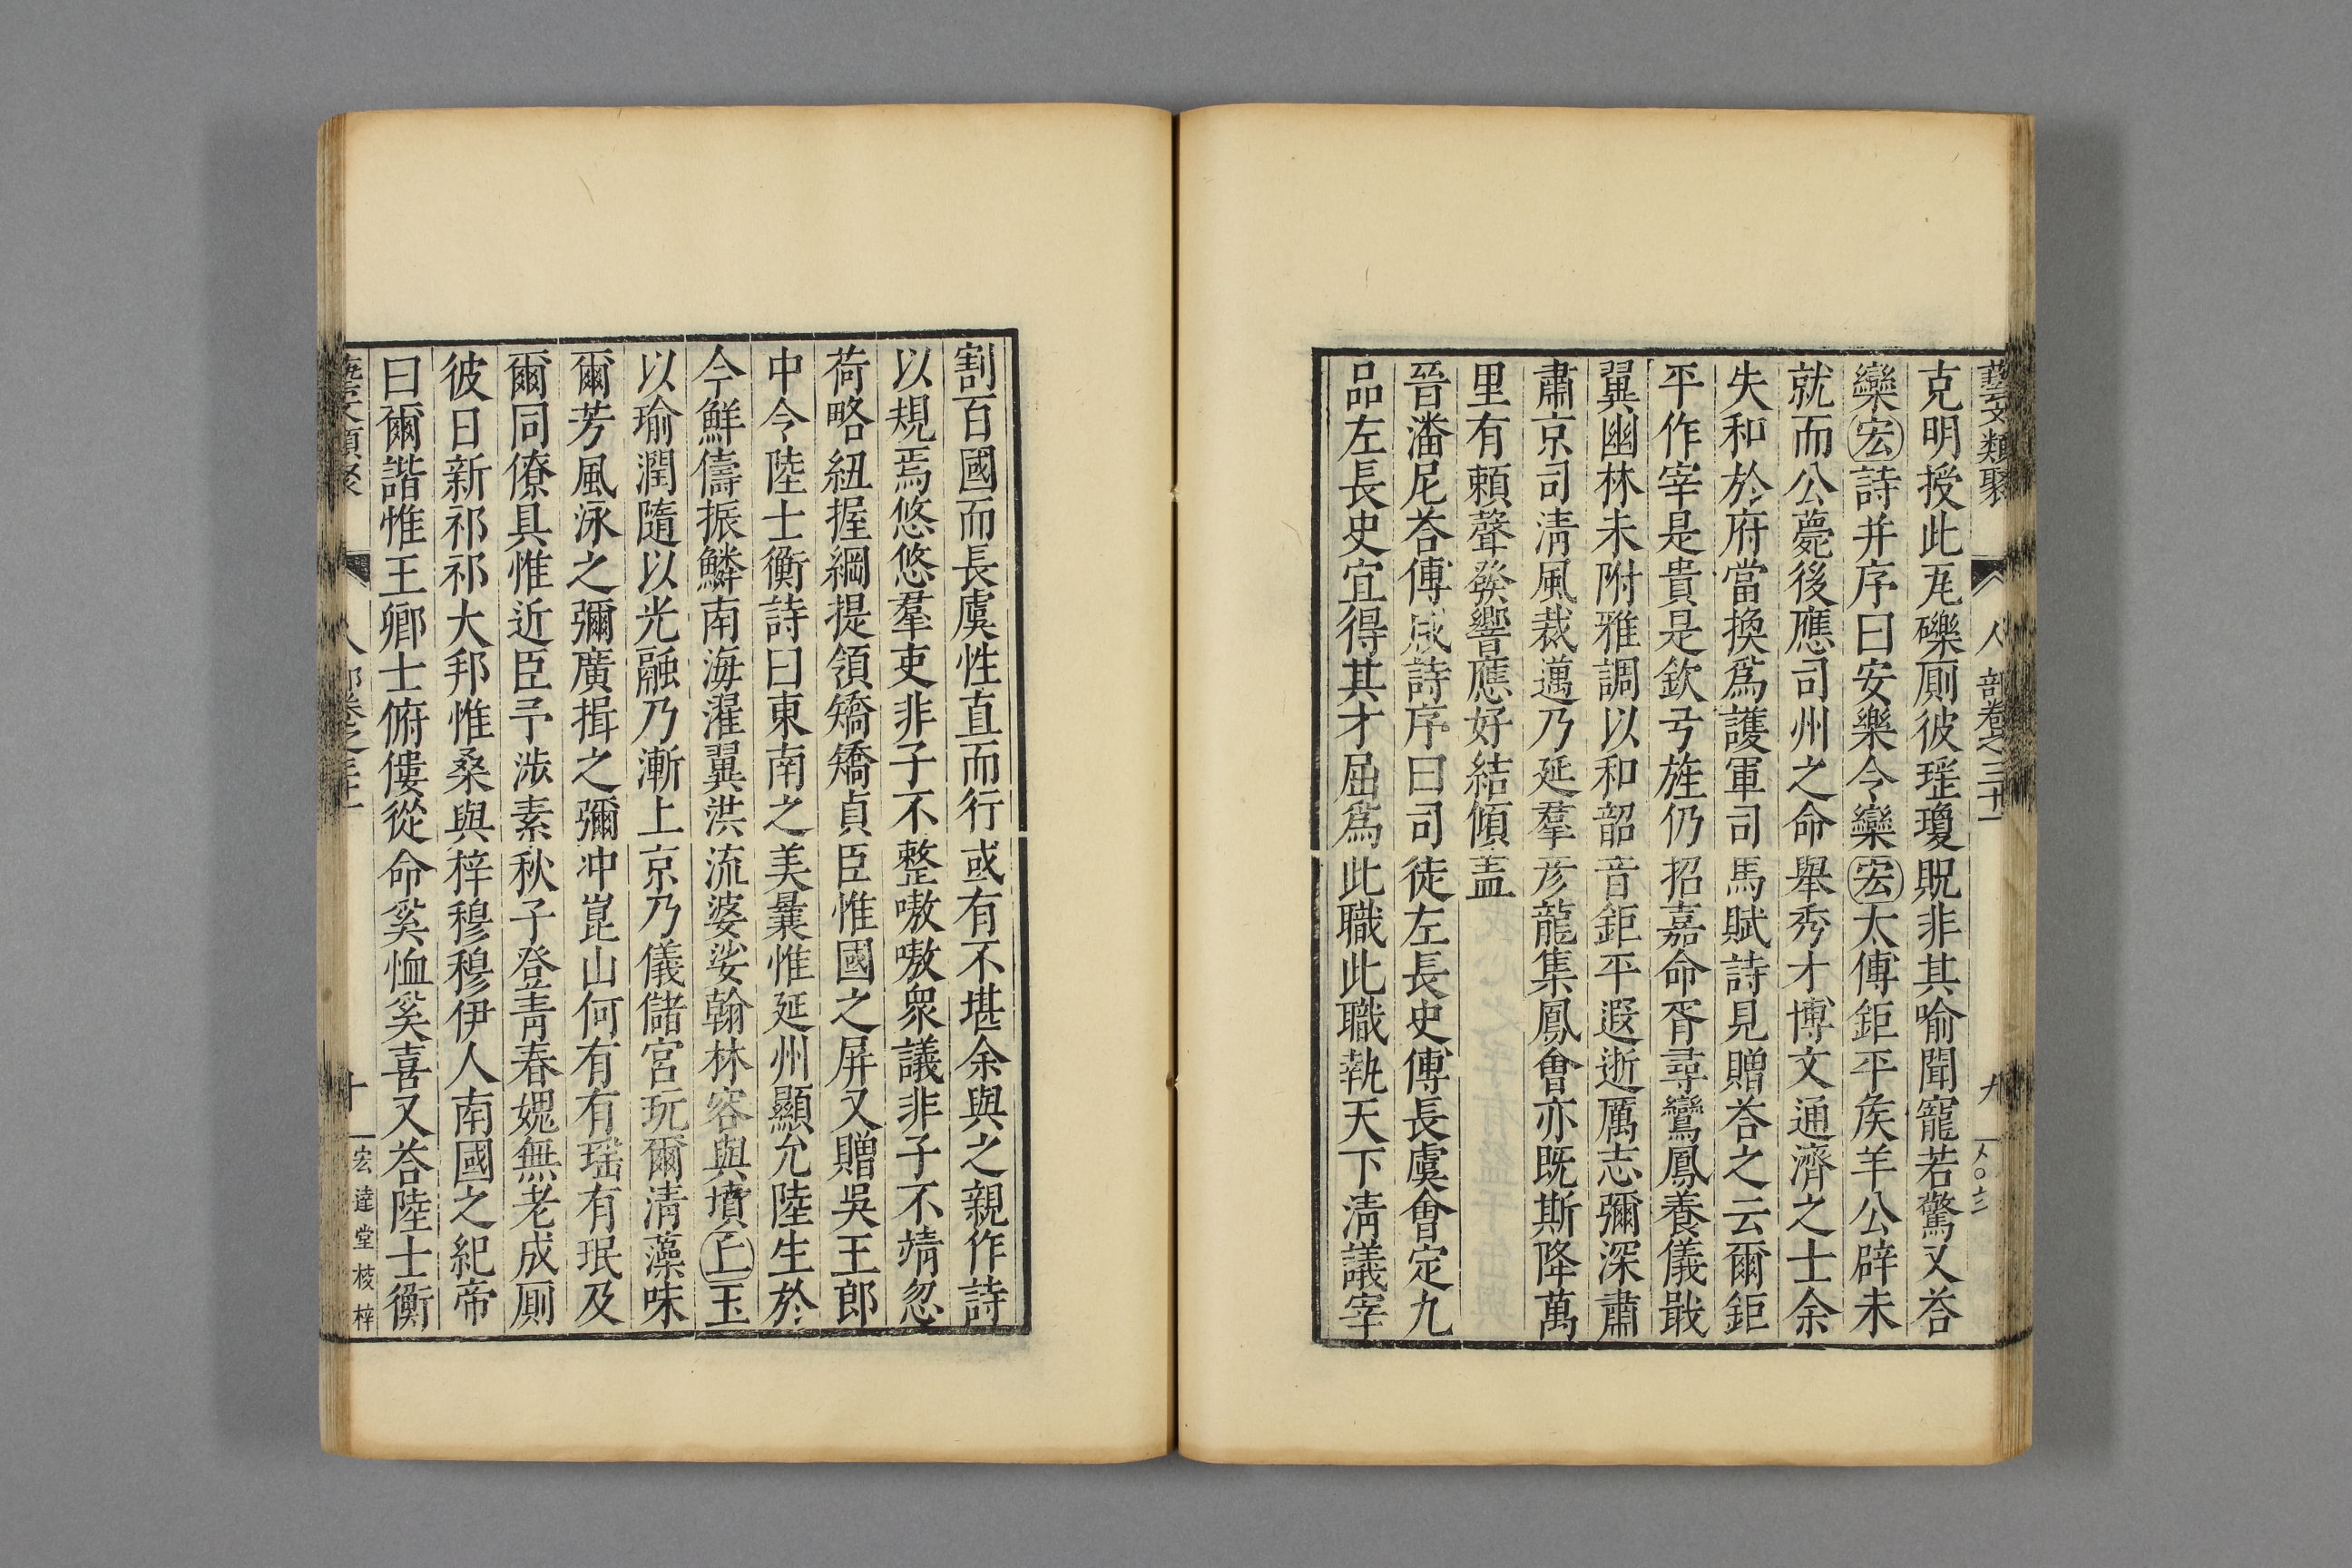 藝文類聚 人部卷之三十一 九
克明授此瓦礫厠彼瑶瓊貺非其喻聞寵若驚又荅
欒宏詩并序曰安樂令欒宏太傅鉅平矦羊公辟未
就而公薨後應司州之命舉秀才博文通濟之士余
失和於府當換爲護軍司馬賦詩見贈荅之云爾鉅
平作宰是貴是欽弓旌仍招嘉命胥尋鸞鳳養儀戢
翼幽林未附雅調以和韶音鉅平遐逝厲志彌深肅
肅京司清風裁邁乃延羣彦龍集鳳會亦旣斯降萬
里有賴聲發響應好結傾盖
晉潘尼荅傅咸詩序曰司徒左長史傅長虞會定九
品左長史宜得其才屈爲此職此職執天下清議宰
割百國而長虞性直而行或有不堪余與之親作詩
以規焉悠悠羣吏非子不整嗷嗷衆議非子不靖忽
荷略紐握綱提領矯矯貞臣惟國之屏又贈吳王郎
中令陸士衡詩曰東南之美曩惟延州顯允陸生於
今鮮儔振鱗南海濯翼洪流婆娑翰林容與墳丘玉
以瑜潤隨以光融乃漸上京乃儀儲宮玩爾清藻味
爾芳風泳之彌廣揖之彌冲崑山何有有瑶有珉及
爾同僚具惟近臣予涉素秋子登青春媿無老成厠
彼日新祁祁大邦惟桑與梓穆穆伊人南國之紀帝
曰爾諧惟王卿士俯僂從命奚恤奚喜又荅陸士衡
藝文類聚 人部卷之三十一 十 宏達堂校梓